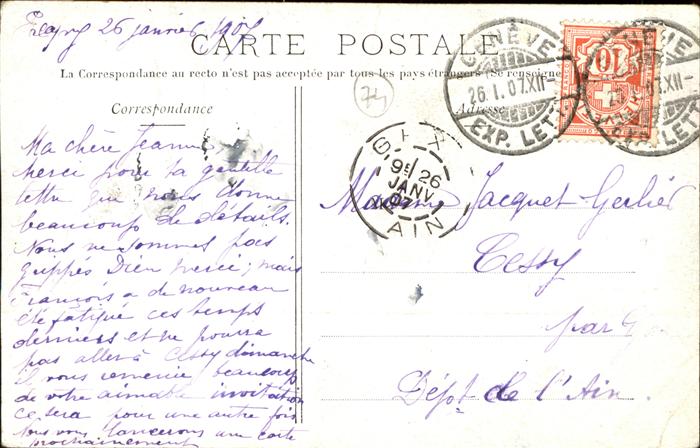 Pregny 26 janvier 1907
CARTE POSTALE
La Correspondance au recto n'est pas acceptée par tous les pays étrangers (Se renseigner
Correspondance
Adresse
74
GENÈVE
26.I.07.XII
EXP. LETT.
GENÈVE
EXP. LETT.
10
GEX
9E 26
JANV
07
AIN
Ma chère Jeanne
Merci pour ta gentille
lettre que nous donne
beaucoup de détails.
Nous ne sommes pas
grippés Dieu merci; mais
François a de nouveau
été fatigué ces temps
derniers et ne pourra
pas aller à Cessy dimanche
il vous remercie beaucoup
de votre aimable invitation
ce sera pour une autre fois
Nous vous lancerons une carte
prochainement
Madame Jacquet-Gerlier
Cessy
par
Dépt de l'Ain.